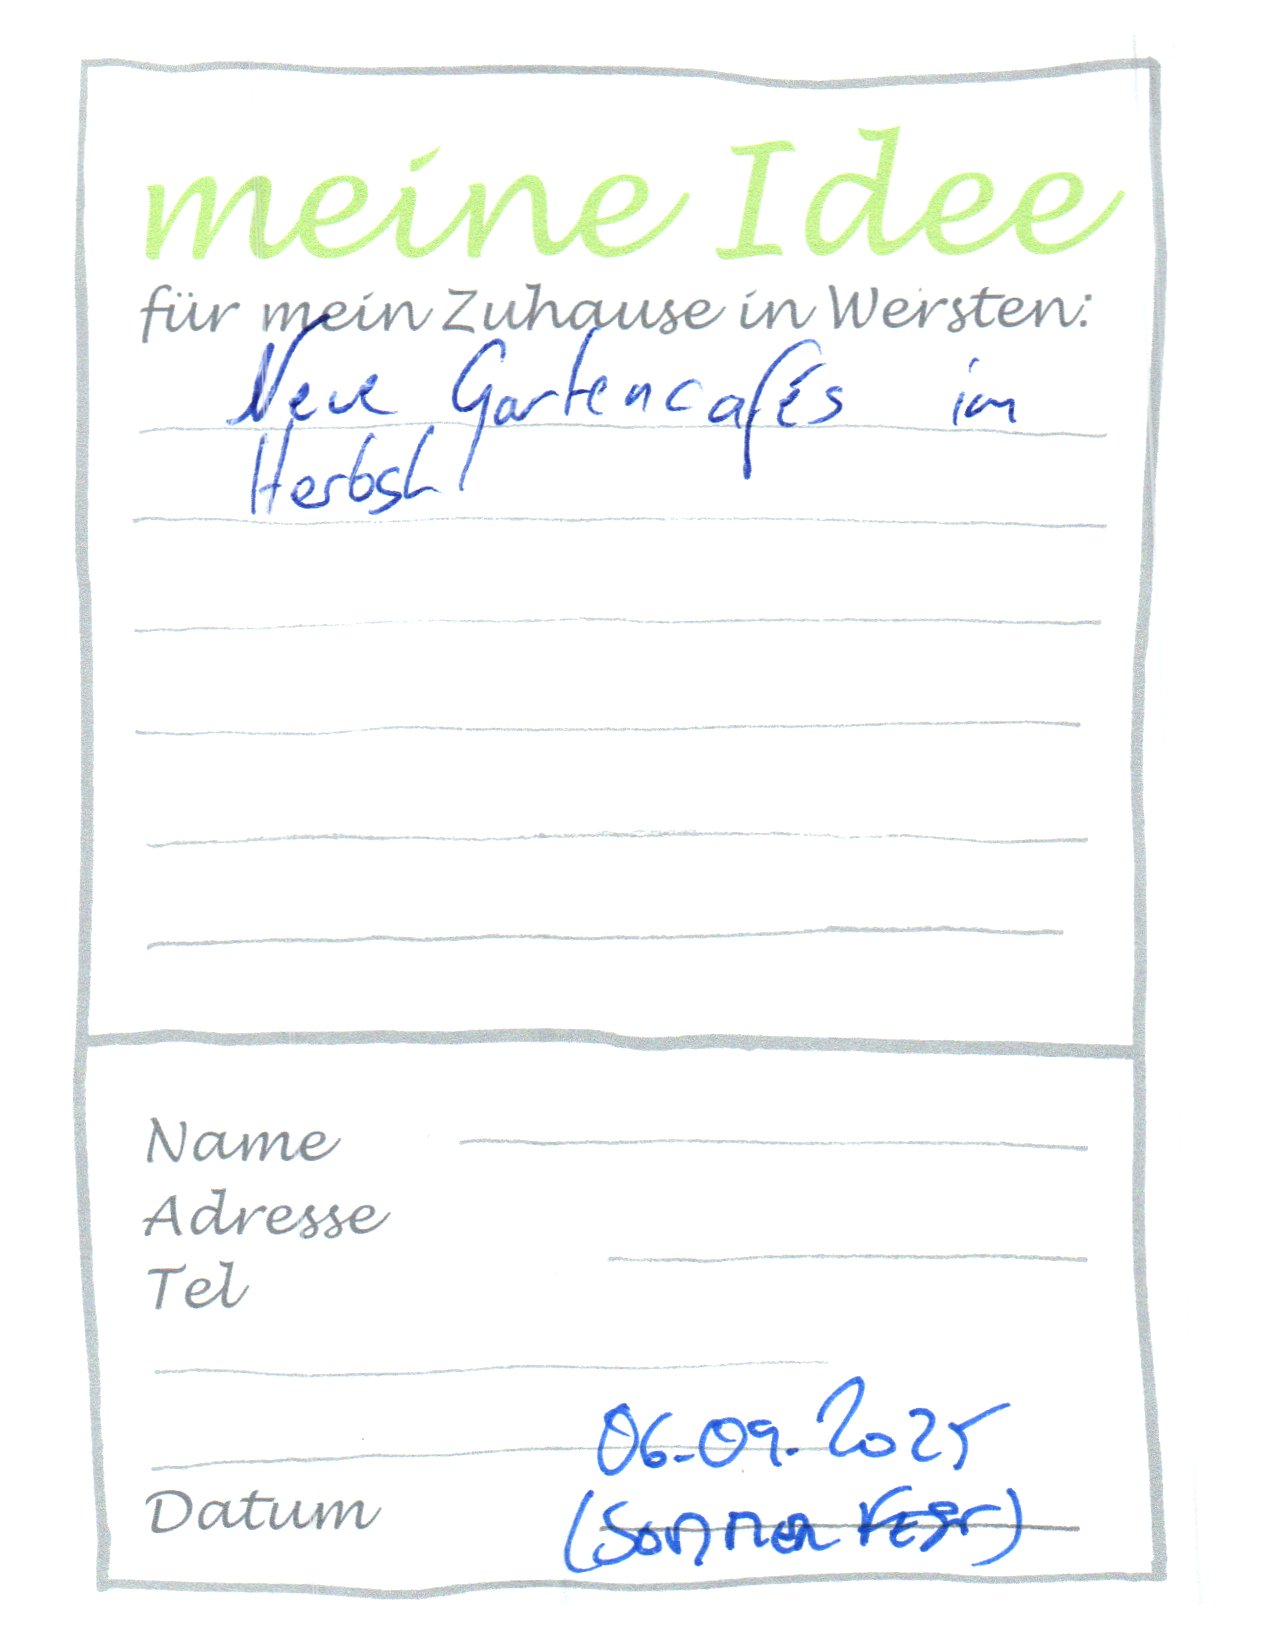 meine Idee
für mein Zuhause in Wersten:
Neue Gartencafés im
Herbst
Name
Adresse
Tel
06.09.2025
Datum
(Sommerfest)